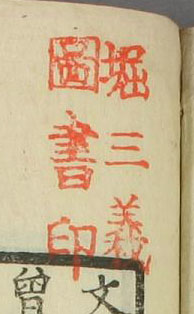 堀三義
圖書印
文
曾